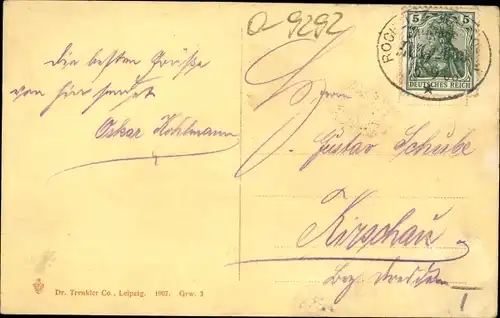 O-9292
5 5
DEUTSCHES REICH
ROCH
Die besten Grüße
von hier sendet
Oskar Kohlmann
Herrn
Gustav Schube
Kirschau.
Bez. Dresden
Dr. Trenkler Co., Leipzig. 1907. Grw. 3
1